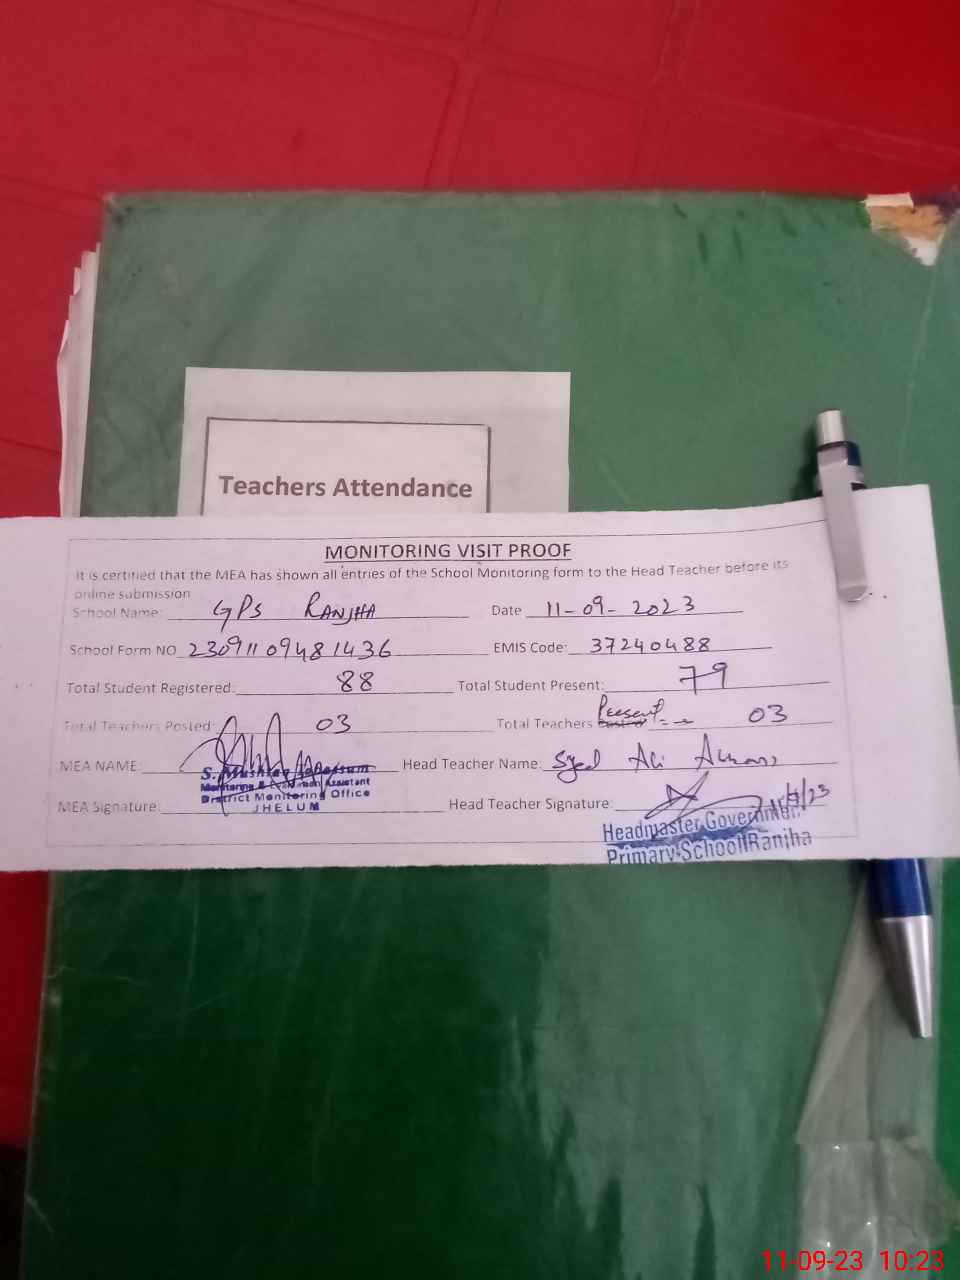 Teachers Attendance
MONITORING VISIT PROOF
It is certified that the MEA has shown all entries of the School Monitoring form to the Head Teacher before its
online submission
School Name: GPS RANJHA Date 11-09-2023
School Form NO 23091109481436 EMIS Code: 37240488
Total Student Registered: 88 Total Student Present: 79
Total Teachers Posted: 03 Total Teachers Present 03
MEA NAME: Head Teacher Name: Syed Ali
S. Mushtaq Tabassum
Monitoring & Evaluation Assistant
District Monitoring Office
JHELUM
MEA Signature: Head Teacher Signature:
Headmaster Government
Primary School Ranjha
11-09-23 10:23